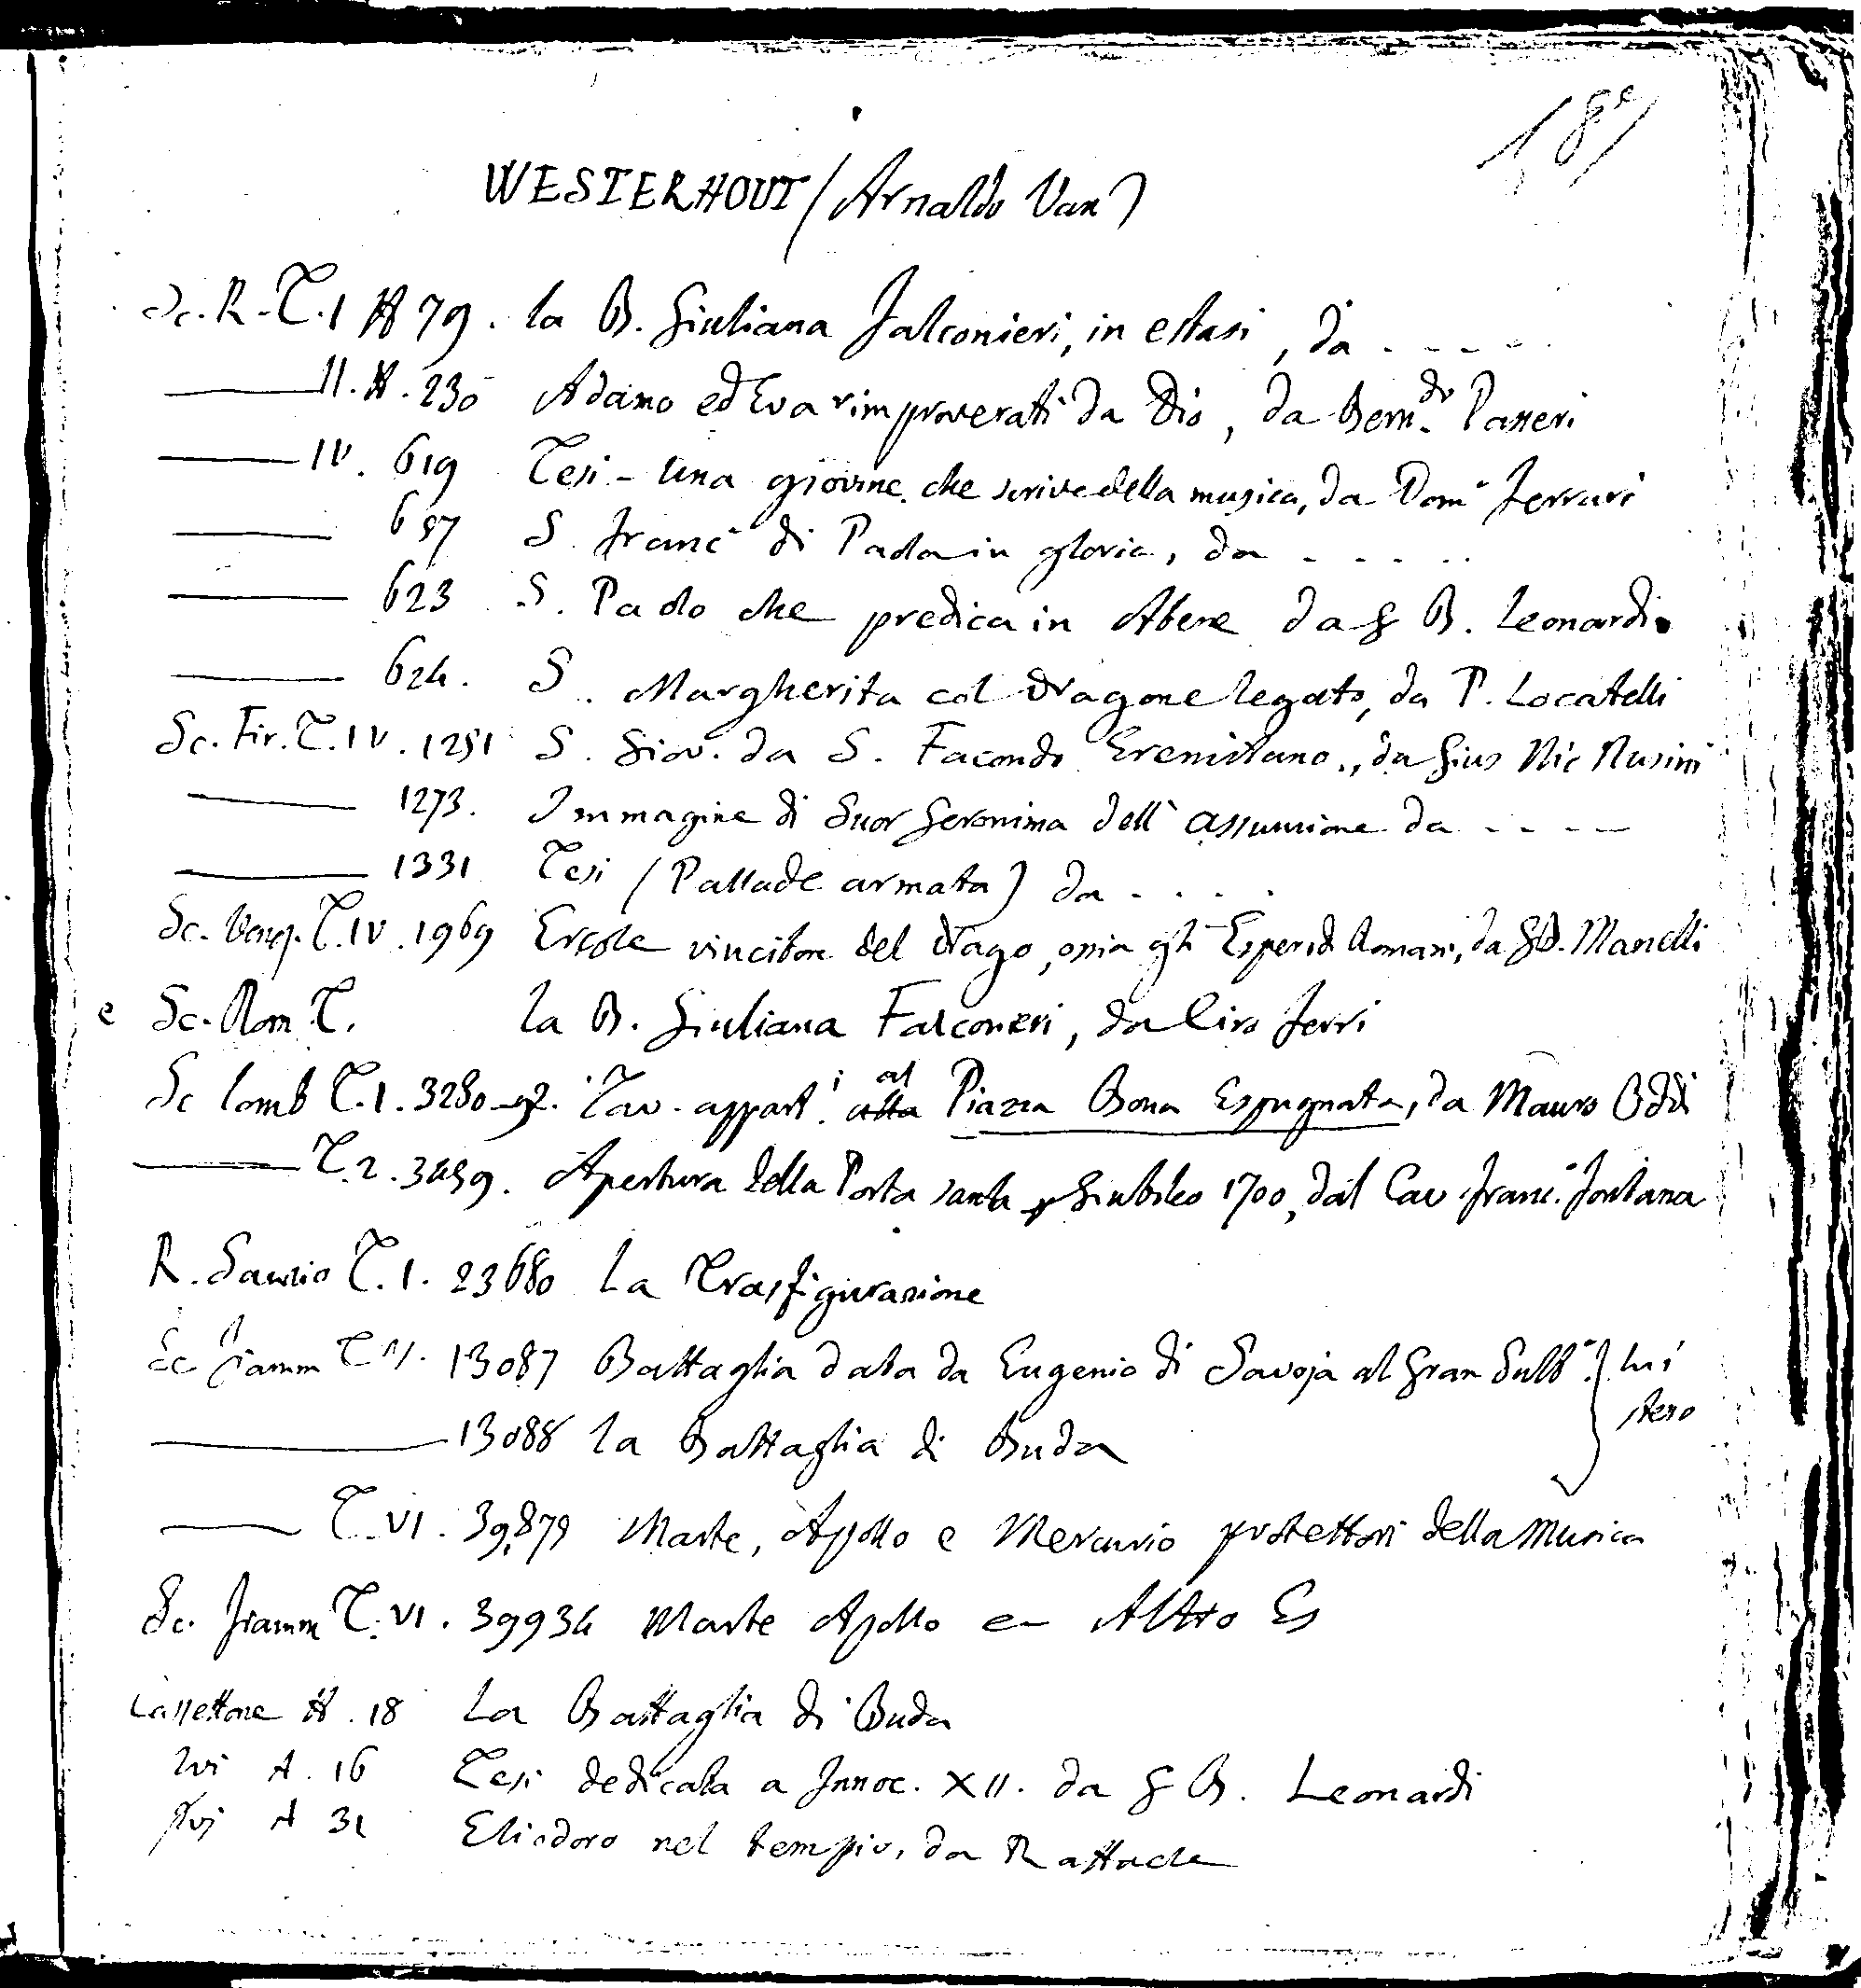 187
WESTERHOUT (Arnaldo Van)
Sc. R. T. I N 79. la B. Giuliana Falconieri, in estasi, da - - - - -
II. N. 230 Adamo ed Eva rimproverati da Dio, da Bern.do Passeri
IV. 619 Tesi - Una giovine che scrive della musica, da Dom.o Ferrari
S. Franc.o di Paola in gloria, da - - - - -
623 S. Paolo che predica in Atene da G B. Leonardi
624. S. Margherita col Dragone legato, da P. Locatelli
Sc. Fir. T. IV. 1251 S. Giov. da S. Facondo Eremitano, da Gius Nic Nasini
1273. Immagine di Suor Geronima dell' assunzione da - - - -
1331 Tesi (Pallade armata) da - - - -
Sc. Venez. T. IV. 1969 Ercole vincitore del Drago, ossia gli Esperidi Romani, da GB. Manelli
e Sc. Rom. T. la B. Giuliana Falconieri, da Ciro Ferri
Sc Lomb T. I. 3280-92. Tav. appart.i al alla Piazza Bona Espugnata, da Mauro Oddi
T. 2. 3459. Apertura della Porta santa pr Giubileo 1700, dal Cav Franc.o Fontana
R. Sanzio T. I. 23680 La Trasfigurazione
Sc Fiamm T 13087 Battaglia data da Eugenio di Savoja al Gran Sult.o } lui
stesso
13088 la Battaglia di Buda
T. VI. 39,879 Marte, Apollo e Mercurio protettori della Musica
Sc. Fiamm T. VI. 39934 Marte Apollo e Altro Es
Cassettone N. 18 La Battaglia di Buda
Ivi N. 16 Tesi dedicata a Innoc. XII. da G B. Leonardi
Ivi N 31 Eliodoro nel tempio, da Raffaele